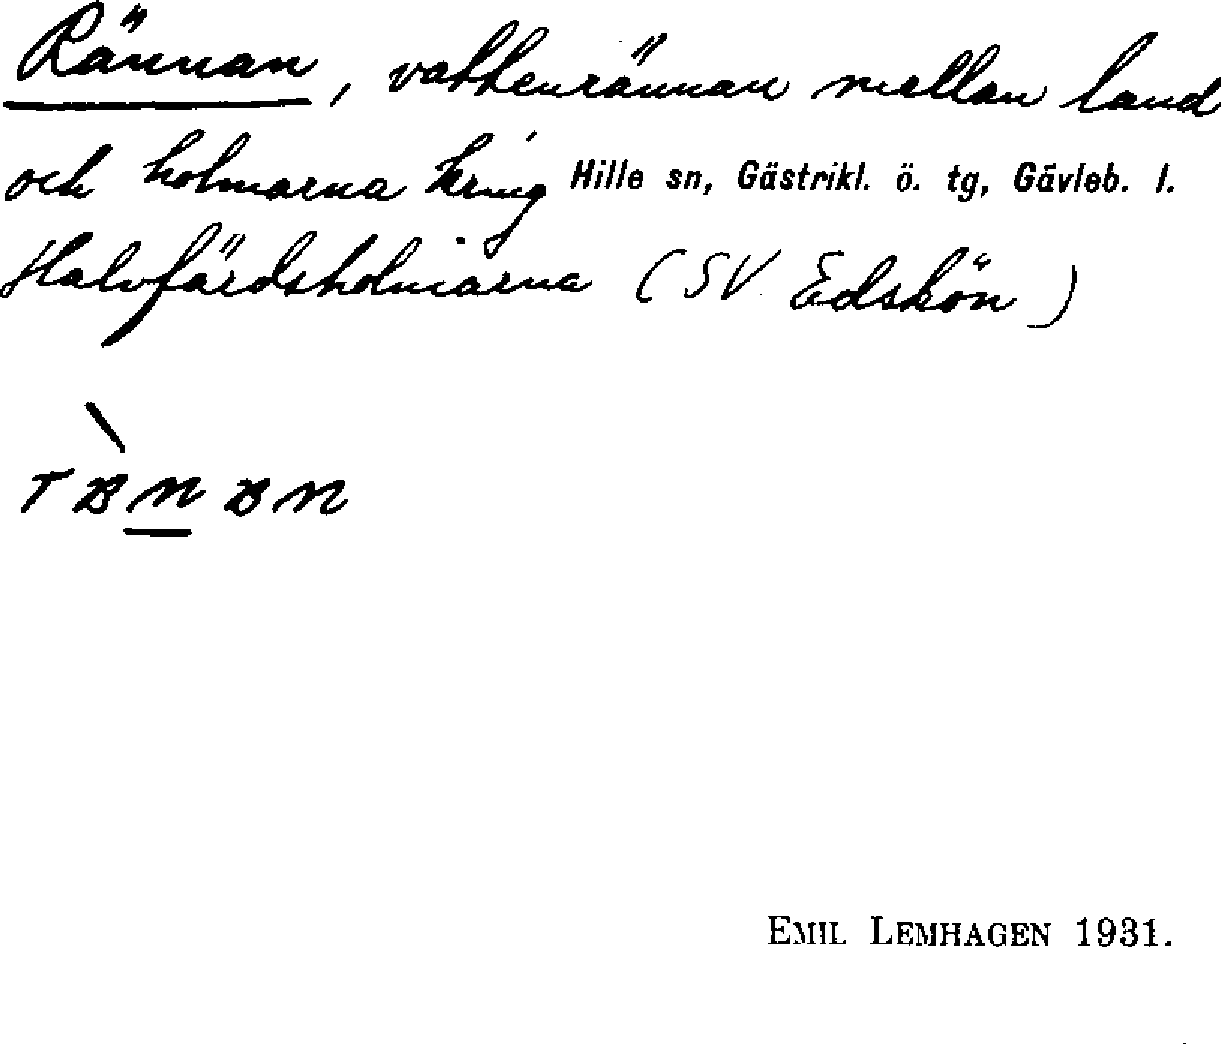 Rännan, vattenrännan mellan land
och holmarna kring Hille sn, Gästrikl. ö. tg, Gävleb. l.
Halvfärdsholmarna (SV Edskön)
Emil Lemhagen 1931.